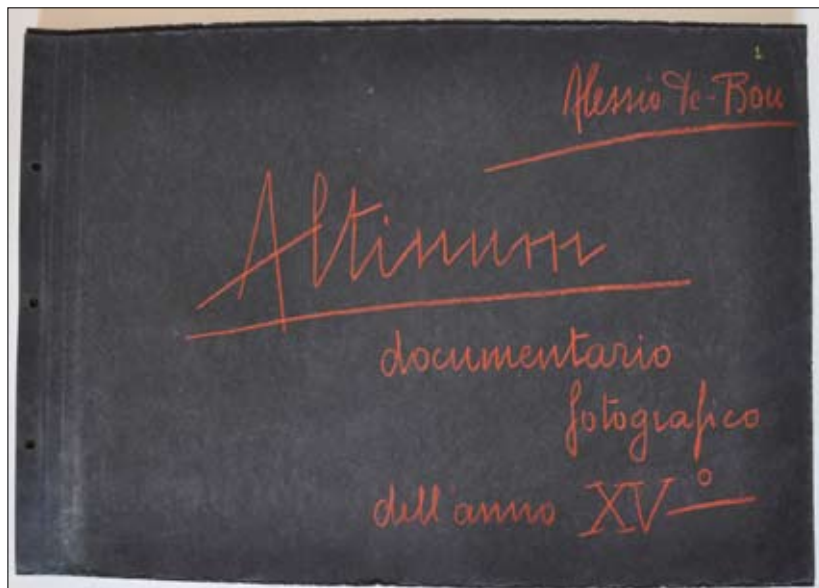 1
Alessio De-Bon
Altinum
documentario
fotografico
dell'anno XV°